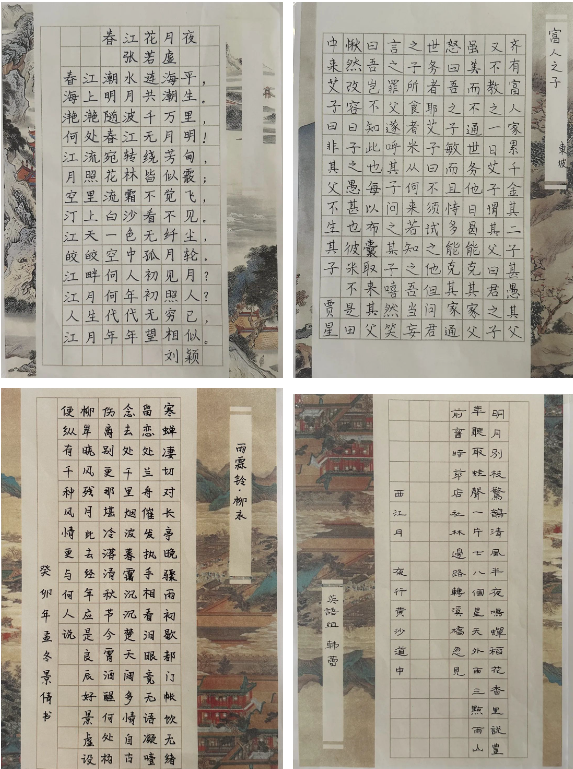 春江花月夜
张若虚
春江潮水连海平，
海上明月共潮生。
滟滟随波千万里，
何处春江无月明！
江流宛转绕芳甸，
月照花林皆似霰；
空里流霜不觉飞，
汀上白沙看不见。
江天一色无纤尘，
皎皎空中孤月轮。
江畔何人初见月？
江月何年初照人？
人生代代无穷已，
江月年年望相似。
刘颖
富人之子
东坡
齐有富人家累千金其二子甚愚其父
又不教之一日艾子谓其父曰君之子
虽美而不通世务他日曷能克其家父
怒曰吾之子敏而且恃多能岂有不通
世务者耶艾子曰不须试之他但问君
之子所食者米从何来若知之吾当妄
言之罪父遂呼其子问之其子嘻然笑
曰吾岂不知此也每以布囊取来其父
愀然改容曰子之愚甚也彼米不是田
中来艾子曰非其父不生其子 贾星
雨霖铃柳永
寒蝉凄切对长亭晚骤雨初歇都门帐饮无绪
留恋处兰舟催发执手相看泪眼竟无语凝噎
念去去千里烟波暮霭沉沉楚天阔多情自古
伤离别更那堪冷落清秋节今宵酒醒何处杨
柳岸晓风残月此去经年应是良辰好景虚设
便纵有千种风情更与何人说
癸卯年孟冬景倩书
明月別枝驚鵲清風半夜鳴蟬稻花香里說豐
年聽取蛙聲一片七八個星天外兩三點雨山
前舊時茅店社林邊路轉溪橋忽見
西江月 夜行黃沙道中
英語組 韩